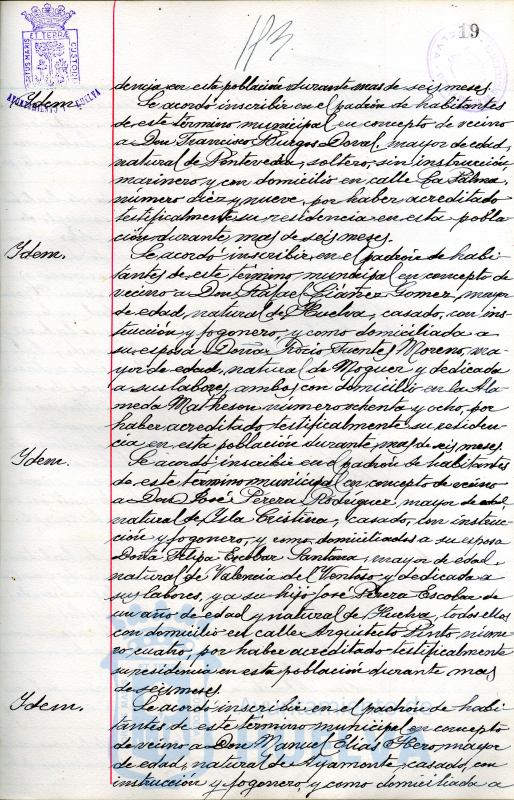 19
113.
PORTUS MARIS ET TERRÆ CUSTODIA
AYUNTAMIENTO HUELVA
Idem.
dencia en esta población durante mas de seis meses.
Se acordó inscribir en el padrón de habitantes
de este término municipal en concepto de vecino
a Don Francisco Burgos Doval, mayor de edad,
natural de Pontevedra, soltero, sin instrucción
marinero, y con domicilio en calle La Palma,
número diez y nueve, por haber acreditado
testificalmente su residencia en esta pobla
ción durante mas de seis meses.
Idem.
Se acordó inscribir en el padrón de habi-
tantes de este término municipal en concepto de
vecino a Don Rafael Giáñez Gomez, mayor
de edad, natural de Huelva, casado, con ins-
trucción y fogonero, y como domiciliada a
su esposa Doña Rocio Fuentes Moreno, ma-
yor de edad, natural de Moguer y dedicada
a sus labores, ambos con domicilio en la Ala-
meda Matheson número ochenta y ocho, por
haber acreditado testificalmente su residen-
cia en esta población durante mas de seis meses.
Idem.
Se acordó inscribir en el padrón de habitantes
de este término municipal en concepto de vecino
a Don José Perera Rodríguez, mayor de edad,
natural de Isla Cristina, casado, con instruc-
ción y fogonero, y como domiciliados a su esposa
Doña Felipa Escobar Santana, mayor de edad,
natural de Valencia del Ventoso y dedicada a
sus labores, y a su hijo José Perera Escobar de
un año de edad y natural de Huelva, todos ellos
con domicilio en calle Arquitecto Pinto núme-
ro cuatro, por haber acreditado testificalmente
su residencia en esta población durante mas
de seis meses.
Idem.
Se acordó inscribir en el padrón de habi-
tantes de este término municipal en concepto
de vecino a Don Manuel Elias Hero, mayor
de edad, natural de Ayamonte, casado, con
instrucción y fogonero, y como domiciliada a